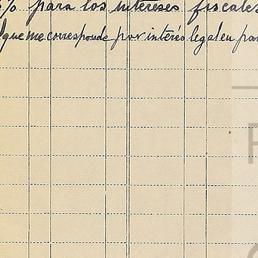 % para los intereses fiscales
que me corresponde por interés legal en pa